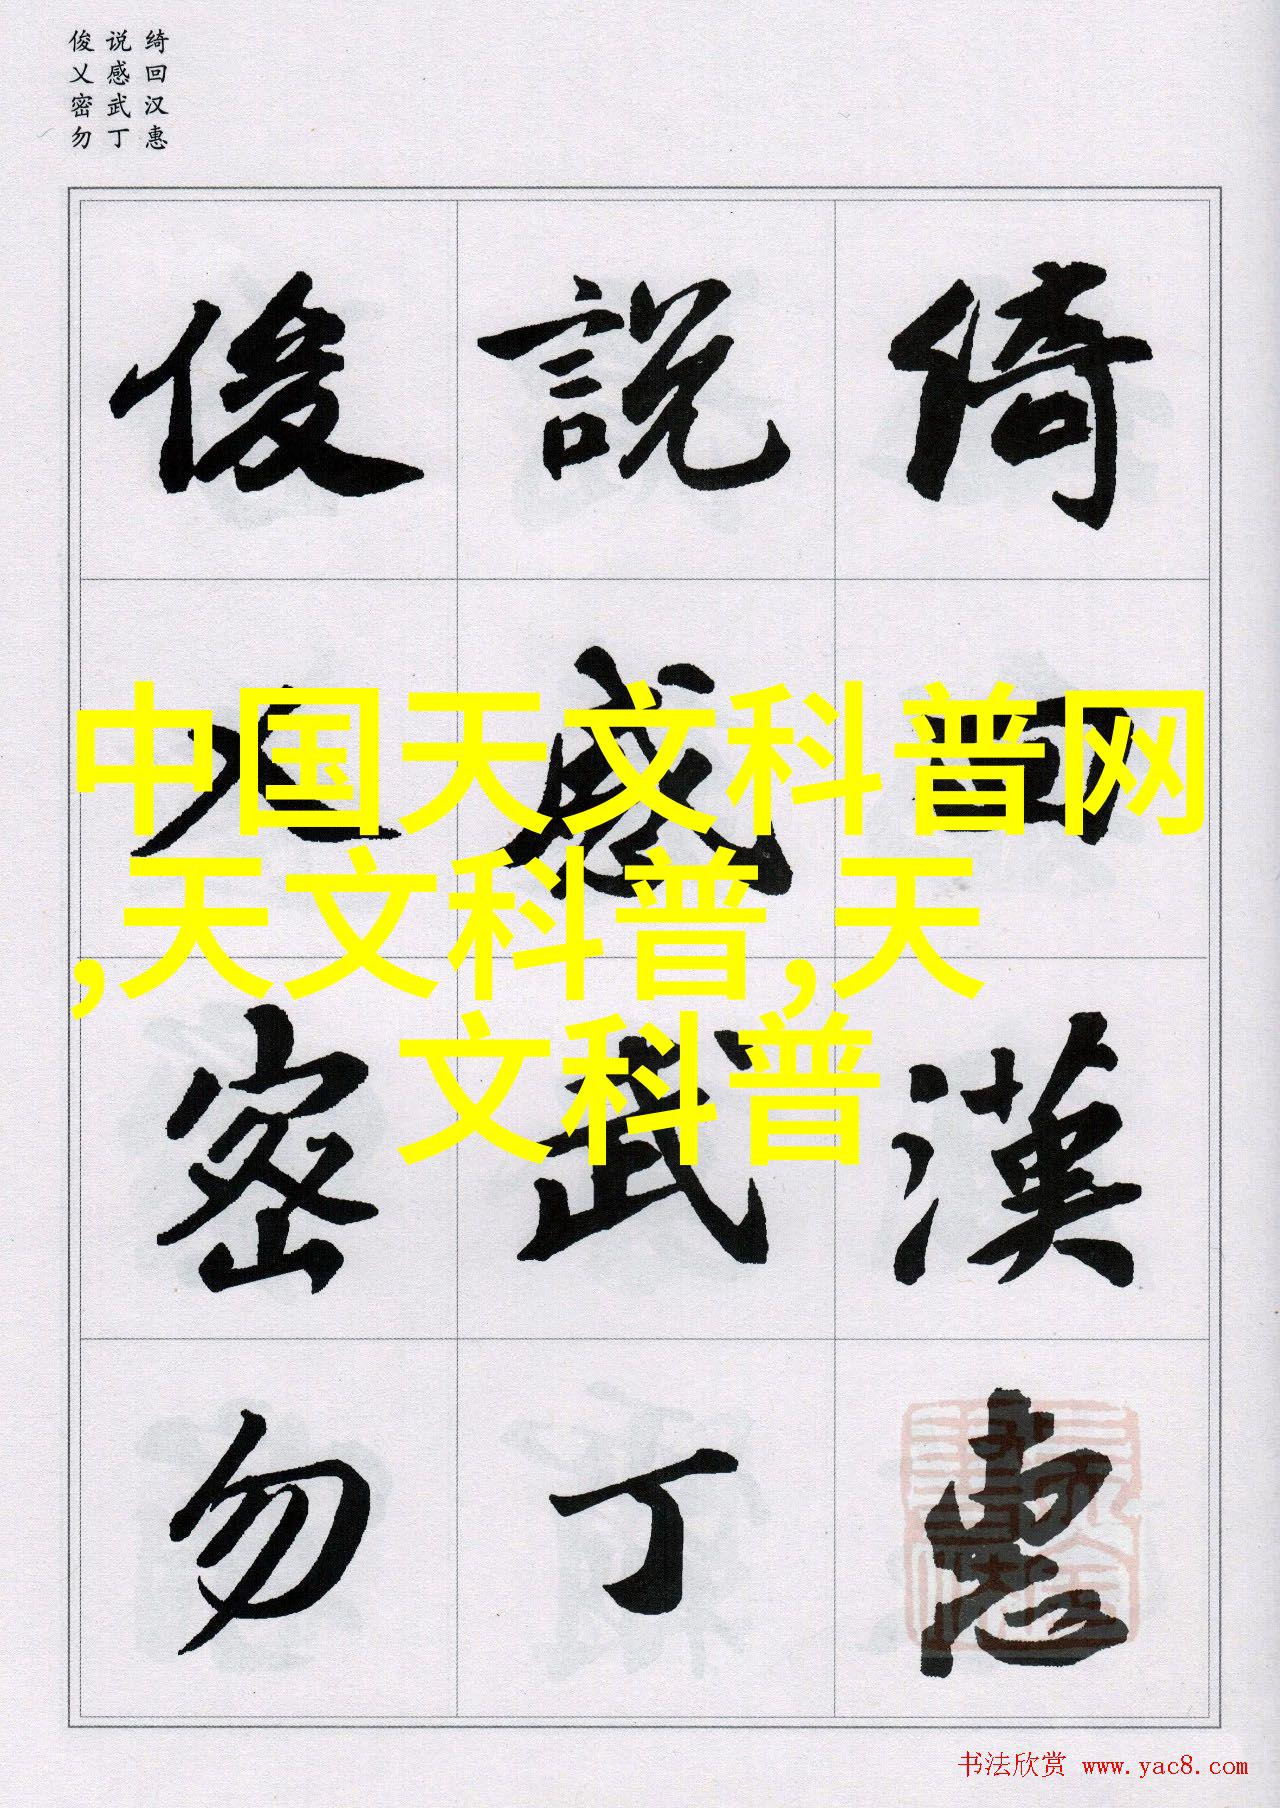 俊 说 绮
乂 感 回
密 武 汉
勿 丁 惠
俊 說 綺
乂 感 回
密 武 漢
勿 丁 惠
中国天文科普网
,天文科普,天
文科普
书法欣赏 www.yac8.com